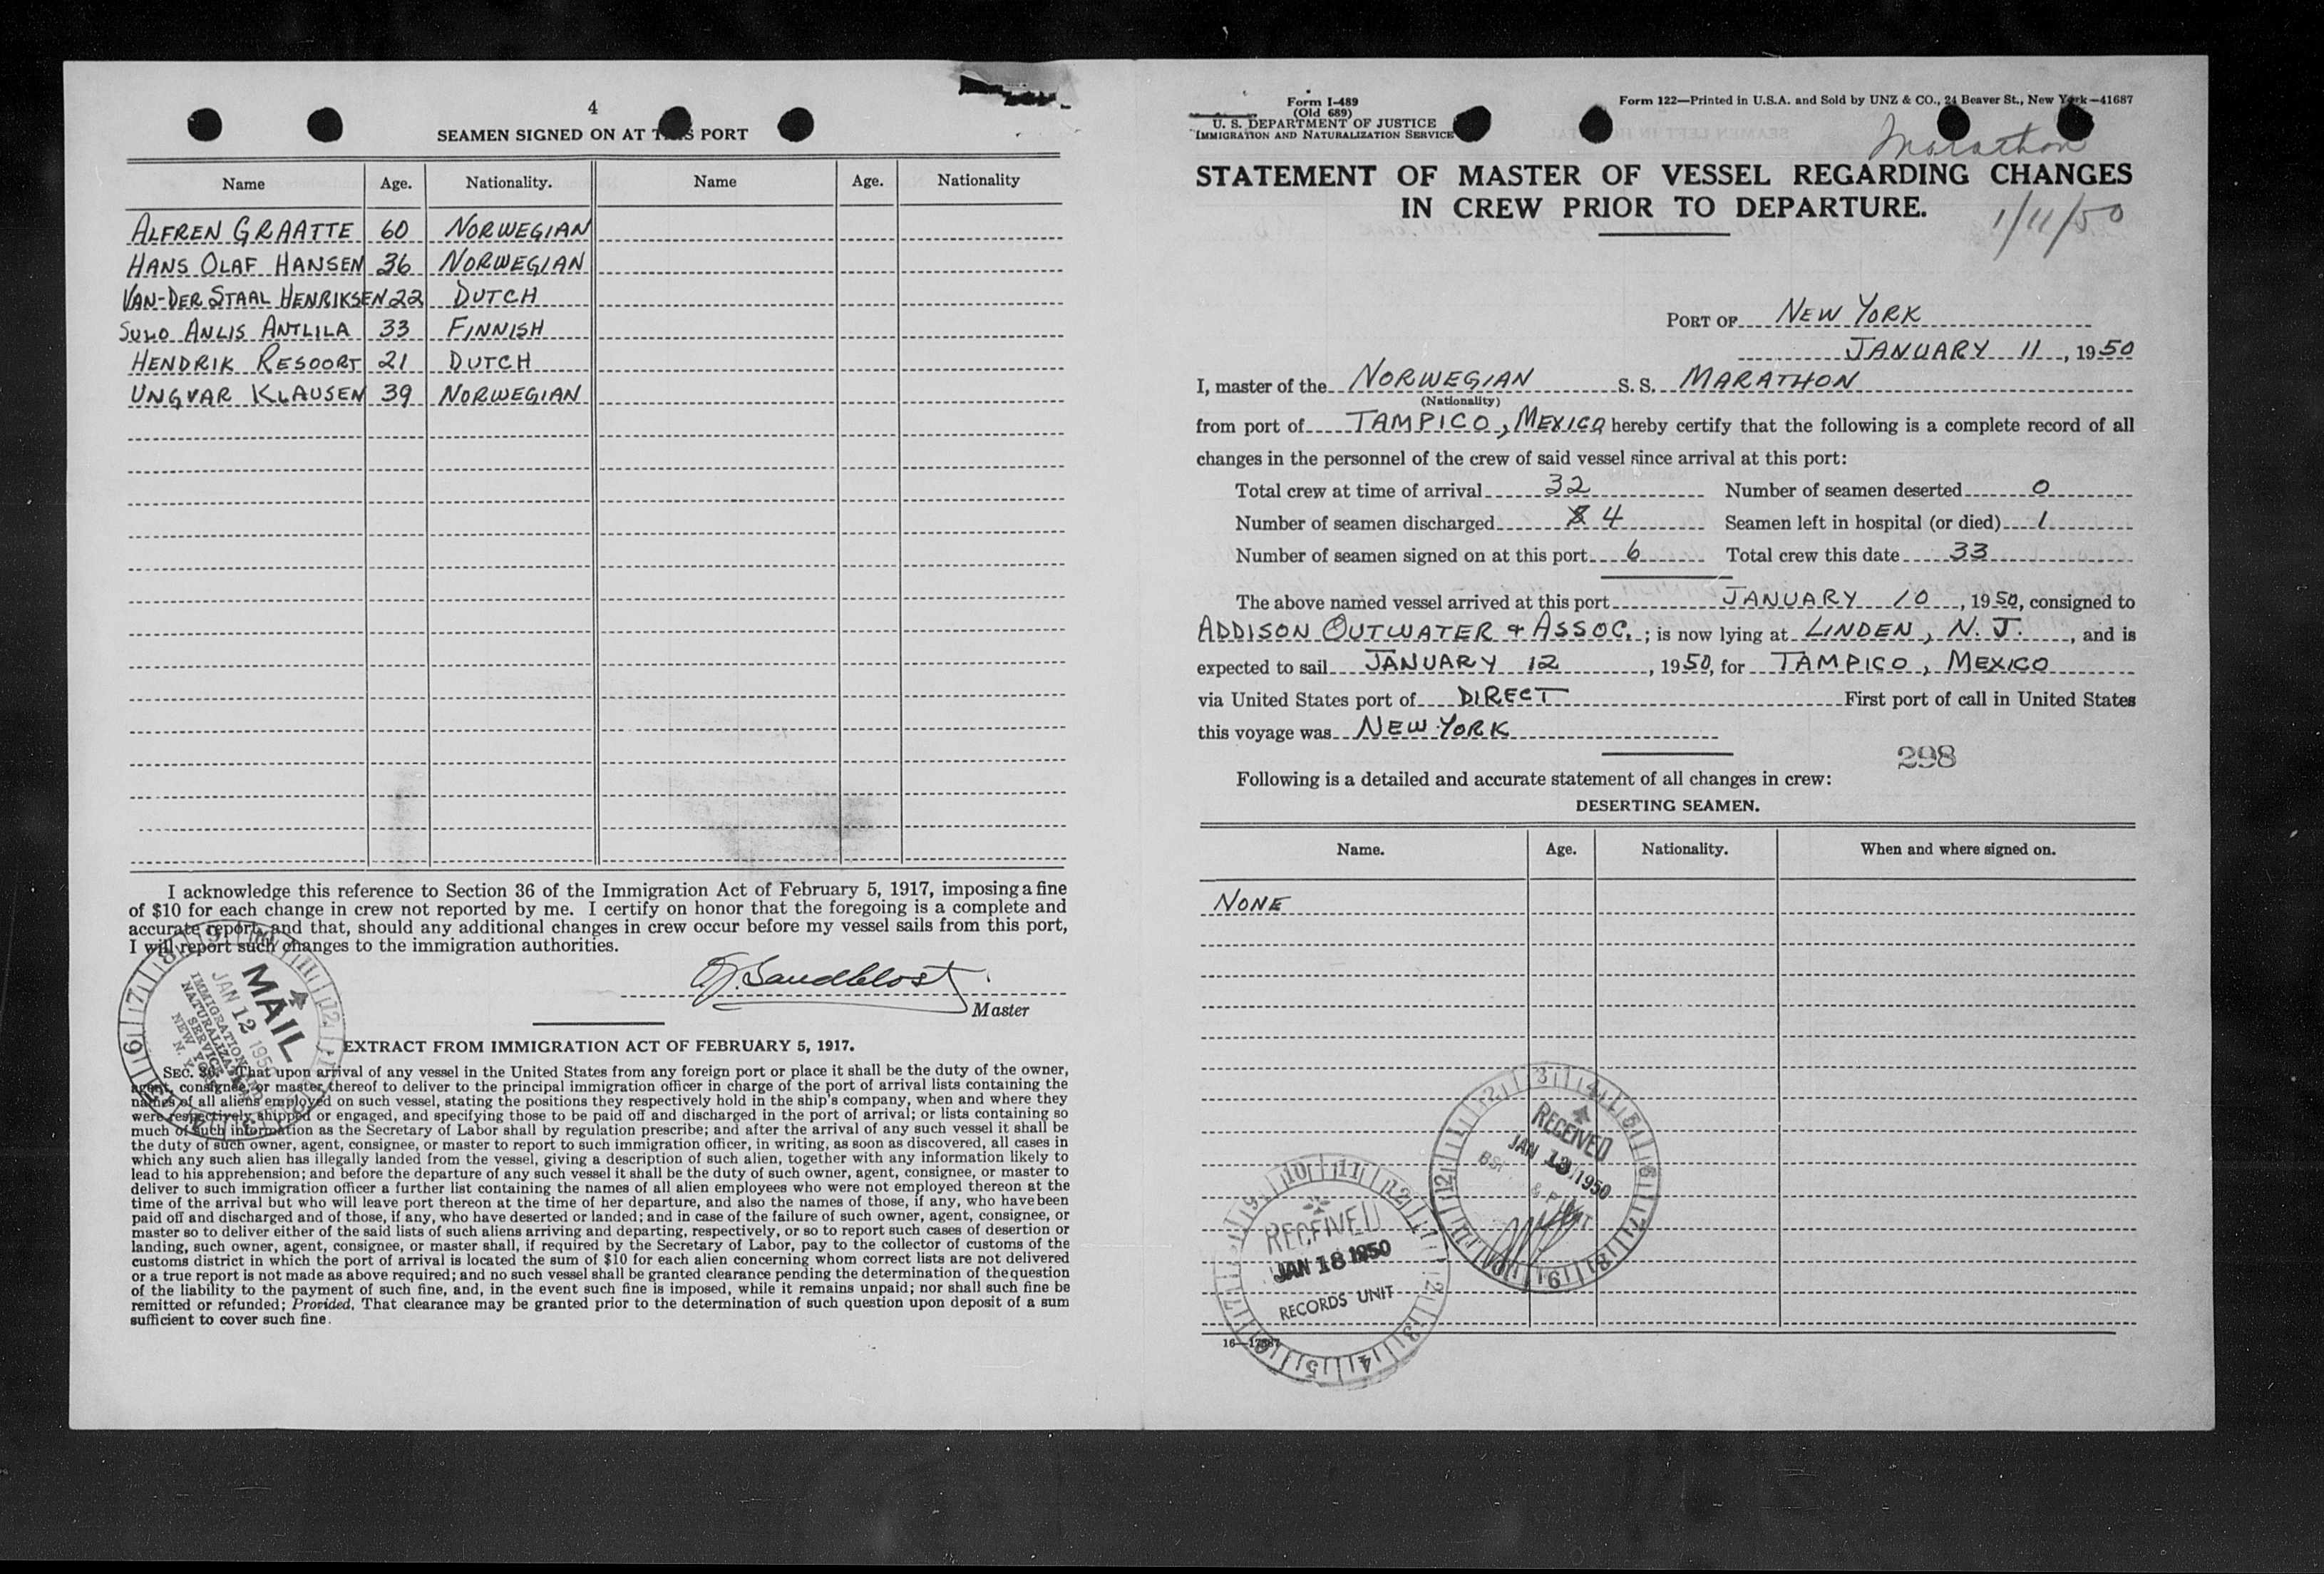 4
SEAMEN SIGNED ON AT THIS PORT
Name Age. Nationality. Name Age. Nationality
ALFREN GRAATTE 60 NORWEGIAN
HANS OLAF HANSEN 36 NORWEGIAN
VAN-DER STAAL HENRIKSEN 22 DUTCH
SULO ANLIS ANTLILA 33 FINNISH
HENDRIK RESOORT 21 DUTCH
UNGVAR KLAUSEN 39 NORWEGIAN
I acknowledge this reference to Section 36 of the Immigration Act of February 5, 1917, imposing a fine
of $10 for each change in crew not reported by me. I certify on honor that the foregoing is a complete and
accurate report, and that, should any additional changes in crew occur before my vessel sails from this port,
I will report such changes to the immigration authorities.
Master
MAIL
JAN 12 1950
IMMIGRATION
NATURALIZATION
SERVICE
NEW YORK
N. Y.
EXTRACT FROM IMMIGRATION ACT OF FEBRUARY 5, 1917.
SEC. 36. That upon arrival of any vessel in the United States from any foreign port or place it shall be the duty of the owner,
agent, consignee, or master thereof to deliver to the principal immigration officer in charge of the port of arrival lists containing the
names of all aliens employed on such vessel, stating the positions they respectively hold in the ship's company, when and where they
were respectively shipped or engaged, and specifying those to be paid off and discharged in the port of arrival; or lists containing so
much of such information as the Secretary of Labor shall by regulation prescribe; and after the arrival of any such vessel it shall be
the duty of such owner, agent, consignee, or master to report to such immigration officer, in writing, as soon as discovered, all cases in
which any such alien has illegally landed from the vessel, giving a description of such alien, together with any information likely to
lead to his apprehension; and before the departure of any such vessel it shall be the duty of such owner, agent, consignee, or master to
deliver to such immigration officer a further list containing the names of all alien employees who were not employed thereon at the
time of the arrival but who will leave port thereon at the time of her departure, and also the names of those, if any, who have been
paid off and discharged and of those, if any, who have deserted or landed; and in case of the failure of such owner, agent, consignee, or
master so to deliver either of the said lists of such aliens arriving and departing, respectively, or so to report such cases of desertion or
landing, such owner, agent, consignee, or master shall, if required by the Secretary of Labor, pay to the collector of customs of the
customs district in which the port of arrival is located the sum of $10 for each alien concerning whom correct lists are not delivered
or a true report is not made as above required; and no such vessel shall be granted clearance pending the determination of the question
of the liability to the payment of such fine, and, in the event such fine is imposed, while it remains unpaid; nor shall such fine be
remitted or refunded; Provided, That clearance may be granted prior to the determination of such question upon deposit of a sum
sufficient to cover such fine.
Form I-489
(Old 689)
U. S. DEPARTMENT OF JUSTICE
IMMIGRATION AND NATURALIZATION SERVICE
Form 122—Printed in U.S.A. and Sold by UNZ & CO., 24 Beaver St., New York—41687
Marathon
STATEMENT OF MASTER OF VESSEL REGARDING CHANGES
IN CREW PRIOR TO DEPARTURE.
1/11/50
PORT OF NEW YORK
JANUARY 11, 1950
I, master of the NORWEGIAN S. S. MARATHON
(Nationality)
from port of TAMPICO, MEXICO hereby certify that the following is a complete record of all
changes in the personnel of the crew of said vessel since arrival at this port:
Total crew at time of arrival 32 Number of seamen deserted 0
Number of seamen discharged 4 Seamen left in hospital (or died) 1
Number of seamen signed on at this port 6 Total crew this date 33
The above named vessel arrived at this port JANUARY 10, 1950, consigned to
ADDISON OUTWATER & ASSOC.; is now lying at LINDEN, N. J., and is
expected to sail JANUARY 12, 1950, for TAMPICO, MEXICO
via United States port of DIRECT First port of call in United States
this voyage was NEW YORK
298
Following is a detailed and accurate statement of all changes in crew:
DESERTING SEAMEN.
Name. Age. Nationality. When and where signed on.
NONE
RECEIVED
JAN 1950
RECEIVED
JAN 18 1950
RECORDS UNIT